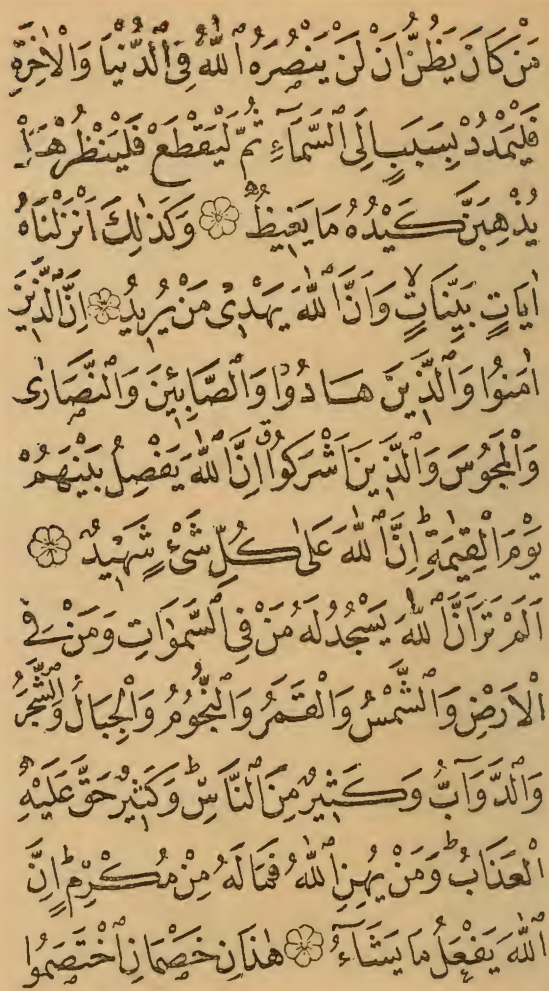 مَنْ كَانَ يَظُنُّ اَنْ لَنْ يَنْصُرَهُ ٱللّٰهُ فِى ٱلدُّنْيَا وَٱلْاٰخِرَةِ
فَلْيَمْدُدْ بِسَبَبٍ اِلَى ٱلسَّمَآءِ ثُمَّ لْيَقْطَعْ فَلْيَنْظُرْ هَلْ
يُذْهِبَنَّ كَيْدُهُ مَا يَغِيظُ ۞ وَكَذٰلِكَ اَنْزَلْنَاهُ
اٰيَاتٍ بَيِّنَاتٍۙ وَاَنَّ ٱللّٰهَ يَهْدِى مَنْ يُرِيدُ ۞ اِنَّ ٱلَّذِينَ
اٰمَنُوا وَٱلَّذِينَ هَادُوا وَٱلصَّابِئِينَ وَٱلنَّصَارٰى
وَٱلْمَجُوسَ وَٱلَّذِينَ اَشْرَكُواۗ اِنَّ ٱللّٰهَ يَفْصِلُ بَيْنَهُمْ
يَوْمَ ٱلْقِيٰمَةِۜ اِنَّ ٱللّٰهَ عَلٰى كُلِّ شَىْءٍ شَهِيدٌ ۞
اَلَمْ تَرَ اَنَّ ٱللّٰهَ يَسْجُدُ لَهُ مَنْ فِى ٱلسَّمٰوَاتِ وَمَنْ فِى
ٱلْاَرْضِ وَٱلشَّمْسُ وَٱلْقَمَرُ وَٱلنُّجُومُ وَٱلْجِبَالُ وَٱلشَّجَرُ
وَٱلدَّوَآبُّ وَكَثِيرٌ مِنَ ٱلنَّاسِۜ وَكَثِيرٌ حَقَّ عَلَيْهِ
ٱلْعَذَابُۜ وَمَنْ يُهِنِ ٱللّٰهُ فَمَا لَهُ مِنْ مُكْرِمٍۜ اِنَّ
ٱللّٰهَ يَفْعَلُ مَا يَشَآءُ ۞ هٰذَانِ خَصْمَانِ ٱخْتَصَمُوا